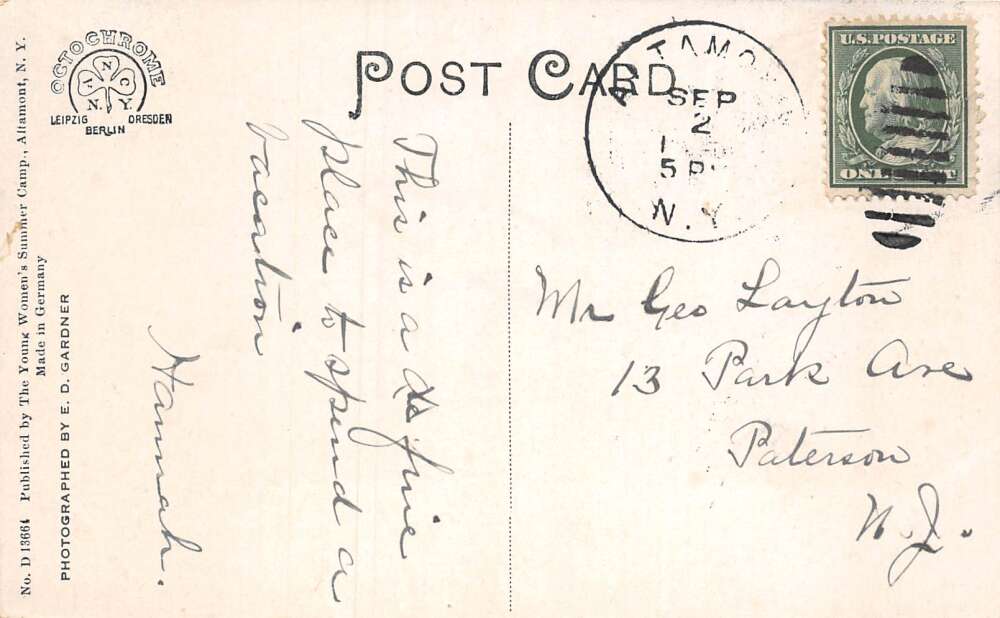 OCTOCHROME
A N C
N. Y.
LEIPZIG DRESDEN
BERLIN
No. D 13664 Published by The Young Women's Summer Camp., Altamont, N. Y.
Made in Germany
PHOTOGRAPHED BY E. D. GARDNER
POST CARD
ALTAMONT
SEP
2
5 P
N.Y.
U.S. POSTAGE
ONE CENT
This is a fine
place to spend a
vacation
Hannah.
Mr Geo Layton
13 Park Ave
Paterson
N.J.